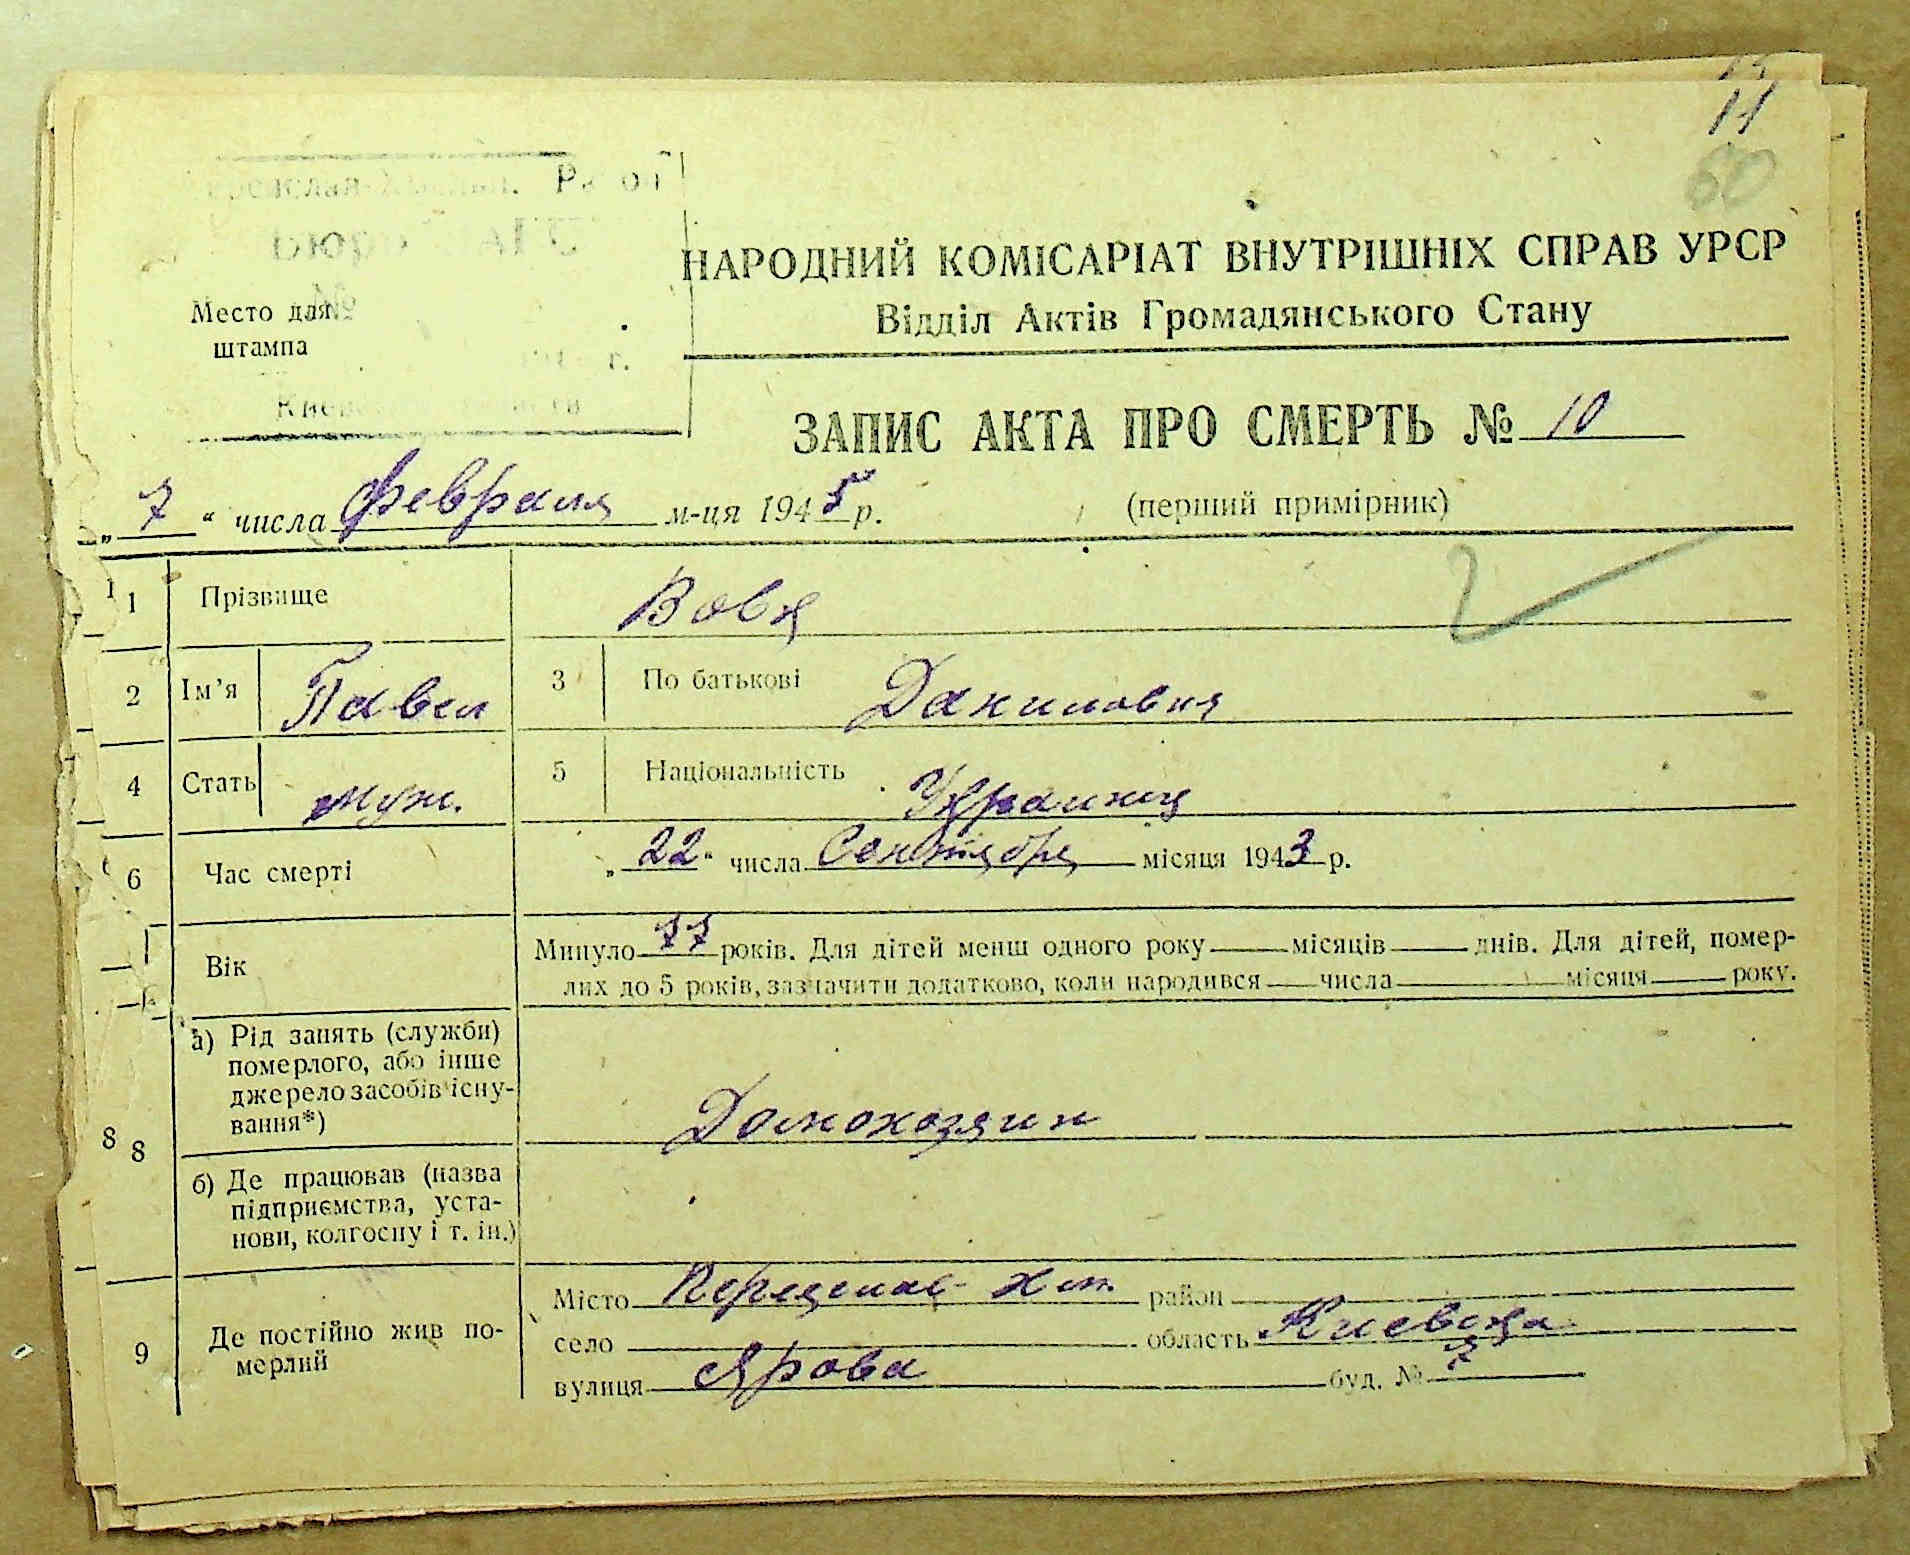 11
60
Район
Бюро ЗАГС
№
НАРОДНИЙ КОМІСАРІАТ ВНУТРІШНІХ СПРАВ УРСР
Відділ Актів Громадянського Стану
Место для
штампа
г.
ЗАПИС АКТА ПРО СМЕРТЬ № 10
„ 7 “ числа февраля м-ця 1945 р. (перший примірник)
1 1 Прізвище Вовк
2 Ім'я Павел 3 По батькові Данилович
4 Стать муж. 5 Національність Украинец
6 Час смерті „ 22 “ числа Сентября місяця 1943 р.
Вік Минуло 77 років. Для дітей менш одного року місяців днів. Для дітей, помер-
лих до 5 років, зазначити додатково, коли народився числа місяця року.
8 8 а) Рід занять (служби)
померлого, або інше
джерело засобів існу-
вання*) Домохозяин
б) Де працював (назва
підприємства, уста-
нови, колгоспу і т. ін.)
9 Де постійно жив по-
мерлий
Місто Переяслав-Хм. район
село область Киевская
вулиця Ярова буд. № 7